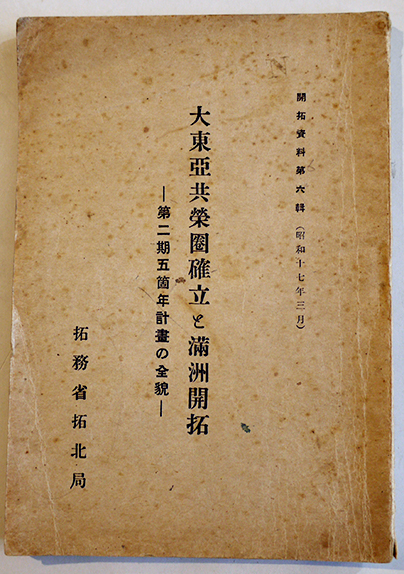 開拓資料第六輯（昭和十七年三月）
大東亞共榮圈確立と滿洲開拓
―第二期五箇年計畫の全貌―
拓務省拓北局